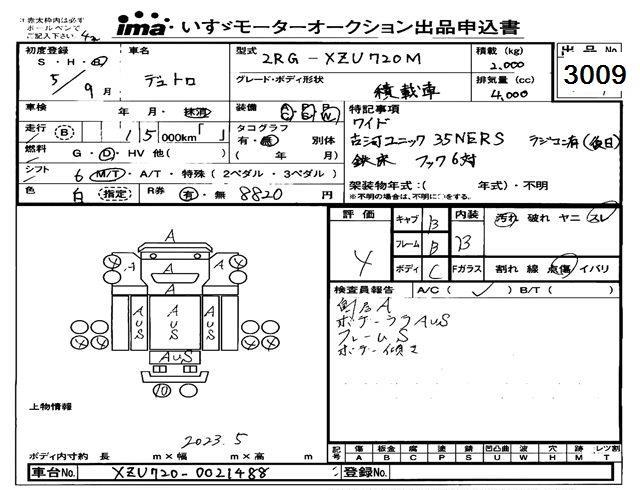 ※赤太枠内は必ず
ボールペンで
ご記入下さい
ima いすゞモーターオークション出品申込書
初度登録 車名 型式 2RG-XZU720M 積載(kg) 2,000 出品No 3009
S・H・R
5/9月 デュトロ グレード・ボディ形状 積載車 排気量(cc) 4,000
車検 年 月・抹消 装備 特記事項
ワイド
走行 (B) 15000km「 」 タコグラフ 有・無 別体
古河ユニック 35NERS ラジコン有(後日)
燃料 G・D・HV 他( ) ( 年 月)
鉄床 フック6対
シフト 6 M/T・A/T・特殊(2ペダル・3ペダル)
架装物年式:( 年式)・不明
※不明の場合は、不明に○をする。
色 白 (指定) R券 有・無 8820円
評価 4 キャブ B 内装 B 汚れ 破れ ヤニ スレ
フレーム B
ボディ C Fガラス 割れ 線 点傷 イバリ
検査員報告 A/C( ✓ ) B/T( )
A
ボデーララAUS
フレームS
ボデー傾き
A
A A
A
AUS AUS AUS
AUS
10
上物情報
2023.5
ボディ内寸約 長 m×幅 m×高 m
記号 傷 板金 腐 塗 錆 凹凸曲 波 穴 跡 レツ割
A B C P S U W H M T
車台No. XZU720-0021488 登録No.